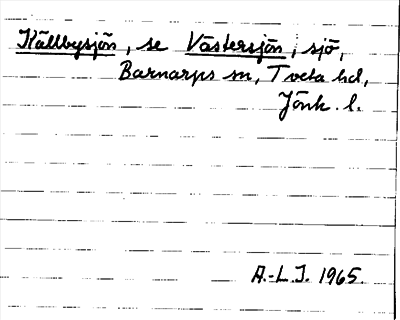 Källbysjön, se Västersjön, sjö,
Barnarps sn, Tveta hd,
Jönk. l.
A.-L.J. 1965.